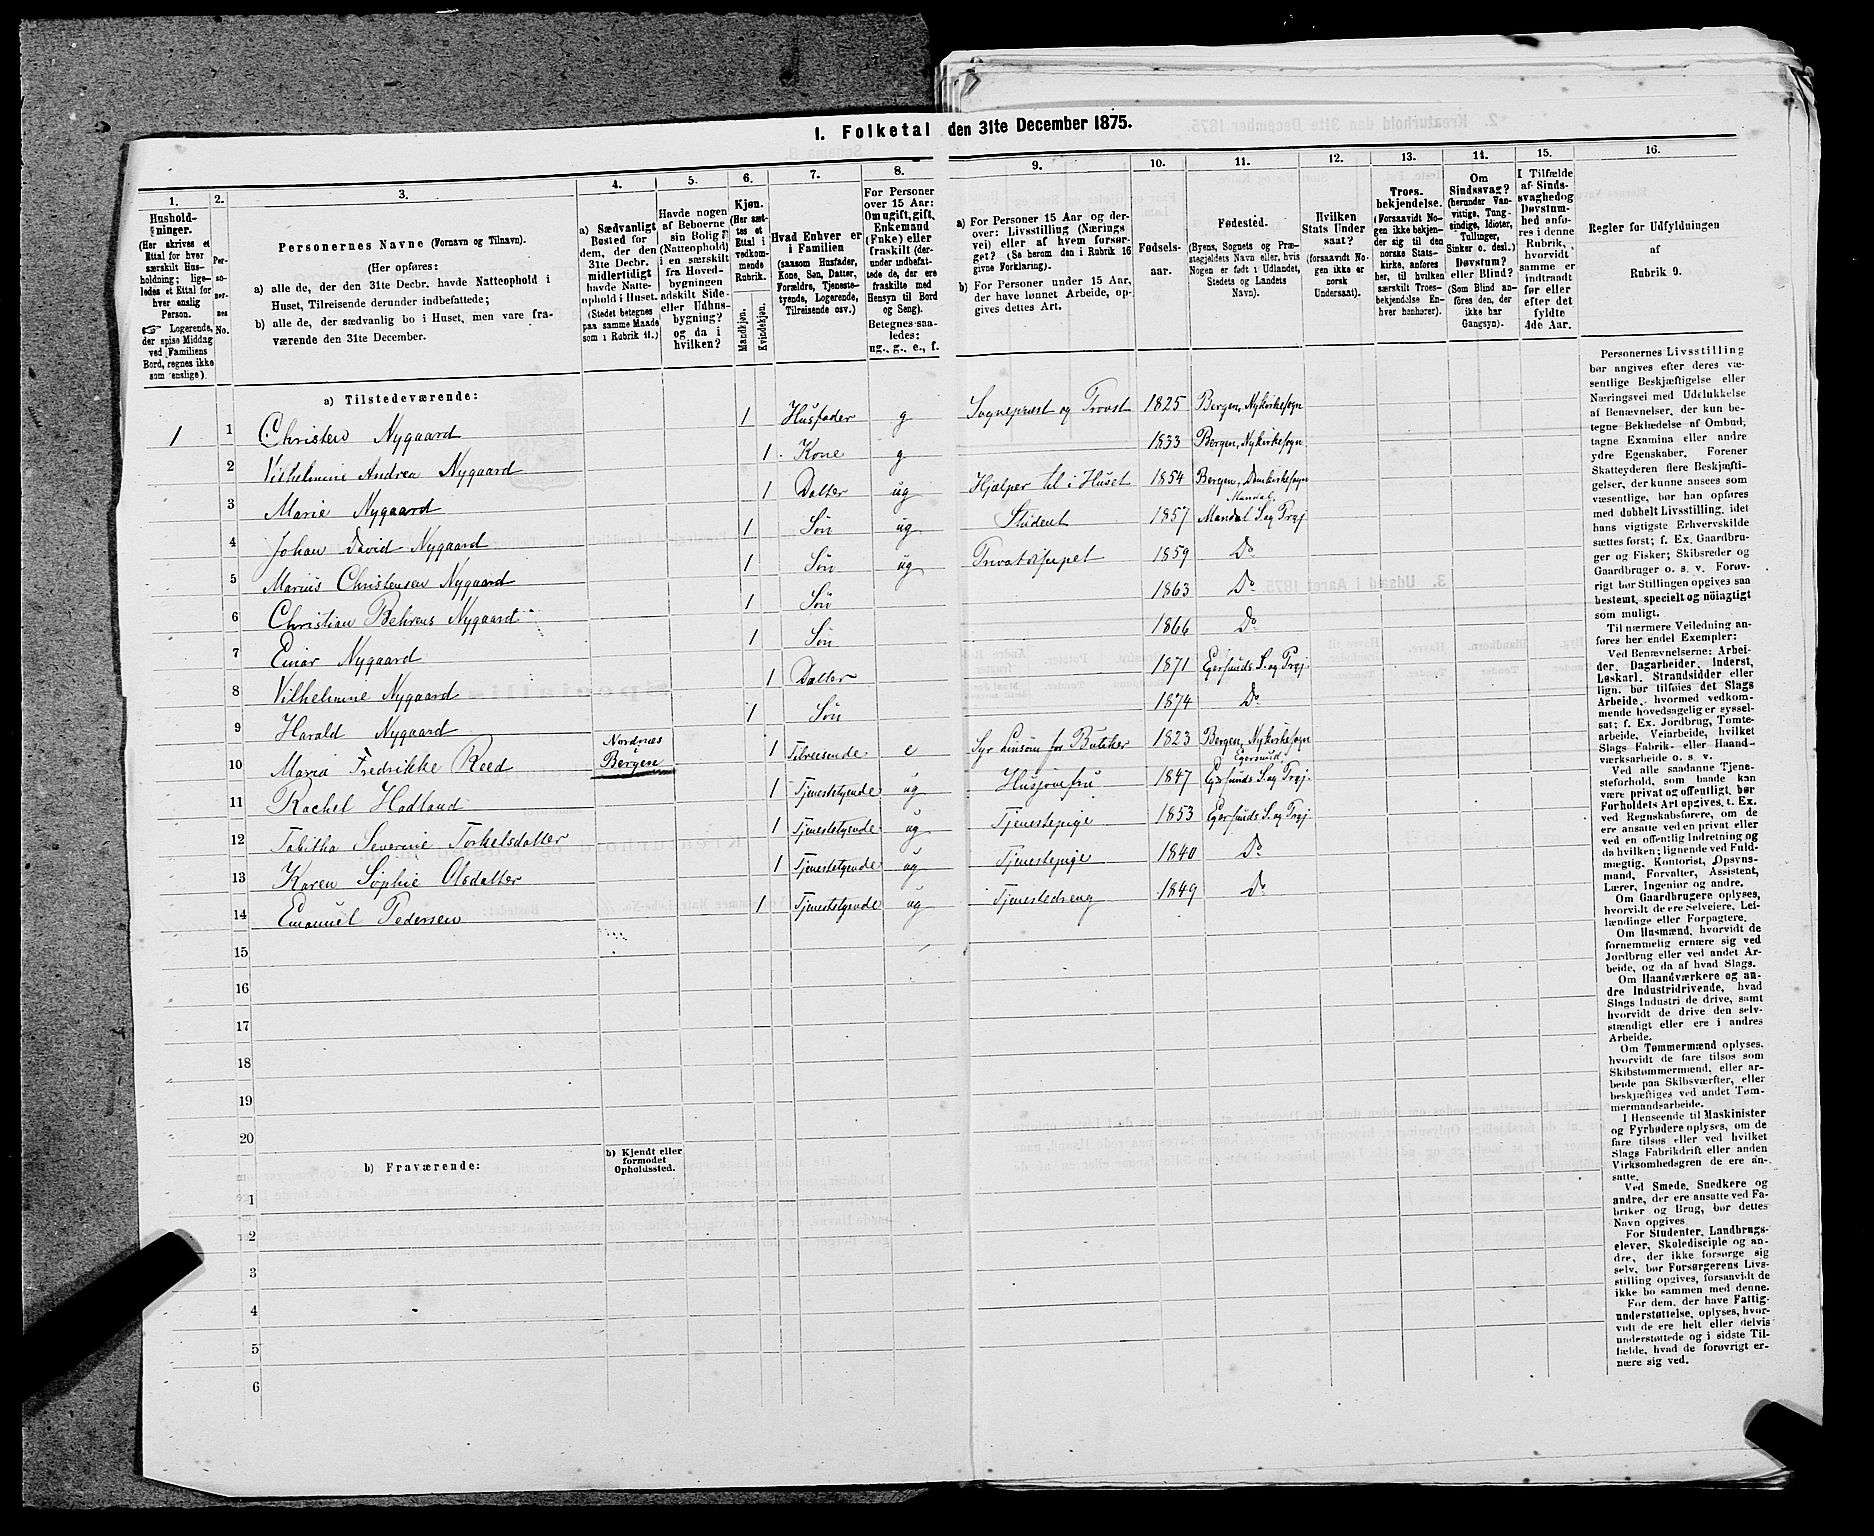 I. Folketal den 31te December 1875.
1. 2. 3. 4. 5. 6. 7. 8. 9. 10. 11. 12. 13. 14. 15. 16.
Hushold-
ninger.
(Her skrives et
Ettal for hver
særskilt Hus-
holdning; lige-
ledes et Ettal for
hver enslig
Person.
☞ Logerende,
der spise Middag
ved Familiens
Bord, regnes ikke
som enslige).
Per-
so-
ner-
nes
No.
Personernes Navne (Fornavn og Tilnavn).
(Her opføres:
a) alle de, der den 31te Decbr. havde Natteophold i
Huset, Tilreisende derunder indbefattede;
b) alle de, der sædvanlig bo i Huset, men vare fra-
værende den 31te December.
a) Sædvanligt
Bosted for
dem, der den
31te Decbr.
midlertidigt
havde Natte-
ophold i Huset.
(Stedet betegnes
paa samme Maade
som i Rubrik 11.)
Havde nogen
af Beboerne
sin Bolig
(Natteophold)
i en særskilt
fra Hoved-
bygningen
adskilt Side-
eller Udhus-
bygning?
og da i
hvilken?
Kjøn.
(Her sæt-
tes et
Ettal i
vedkom-
mende
Rubrik.
Mandkjøn.
Kvindekjøn.
Hvad Enhver er
i Familien
(saasom Husfader,
Kone, Søn, Datter,
Forældre, Tjeneste-
tyende, Logerende,
Tilreisende osv.)
For Personer
over 15 Aar:
Om ugift, gift,
Enkemand
(Enke) eller
fraskilt (der-
under indbefat-
tede de, der ere
fraskilte med
Hensyn til Bord
og Seng).
Betegnes saa-
ledes:
ug., g., e., f.
a) For Personer 15 Aar og der-
over: Livsstilling (Nærings-
vei) eller af hvem forsør-
get? (Se herom den i Rubrik 16
givne Forklaring).
b) For Personer under 15 Aar,
der have lønnet Arbeide, op-
gives dettes Art.
Fødsels-
aar.
Fødested.
(Byens, Sognets og Præ-
stegjeldets Navn eller, hvis
Nogen er født i Udlandet,
Stedets og Landets
Navn).
Hvilken
Stats Under
saat?
(forsaavidt No-
gen ikke er
norsk
Undersaat).
Troes-
bekjendelse.
(Forsaavidt No-
gen ikke bekjen-
der sig til den
norske Stats-
kirke, anføres
her, til hvilken
særskilt Troes-
bekjendelse En-
hver henhører).
Om
Sindssvag?
(herunder Van-
vittige, Tung-
sindige, Idioter,
Tullinger,
Sinker o. desl.)
Døvstum?
eller Blind?
(Som Blind an-
føres den, der
ikke har
Gangsyn).
I Tilfælde
af Sinds-
svaghed og
Døvstum-
hed anfø-
res i denne
Rubrik,
hvorvidt
samme er
indtraadt
før eller
efter det
fyldte
4de Aar.
Regler for Udfyldningen
af
Rubrik 9.
a) Tilstedeværende:
1 1 Christen Nygaard 1 Husfader g Sognepræst og Provst 1825 Bergen, Nykirkesogn
2 Vilhelmine Andrea Nygaard 1 Kone g 1833 Bergen, Nykirkesogn
3 Marie Nygaard 1 Datter ug Hjælper til i Huset 1854 Bergen, Domkirkesogn
Mandal
4 Johan David Nygaard 1 Søn ug Student 1857 Mandal S. og Præj.
5 Marius Christensen Nygaard 1 Søn ug 1859 Do
6 Christian Behrens Nygaard 1 Søn 1863 Do
7 Einar Nygaard 1 Søn 1866 Do
8 Vilhelmine Nygaard 1 Datter 1871 Egersunds S. og Præj.
9 Harald Nygaard 1 Søn 1874 Do
Nordnes
10 Maria Fredrikke Reed Bergen 1 Tilreisende e Syr Linsøm for Butiker 1823 Bergen, Nykirkesogn
Egersund
11 Rachel Hadland 1 Tjenestetyende ug Husjomfru 1847 Egersunds S. og Præj.
12 Tabitha Severine Torkelsdatter 1 Tjenestetyende ug Tjenestepige 1853 Egersunds S. og Præj.
13 Karen Sophie Olsdatter 1 Tjenestetyende ug Tjenestepige 1840 Do
14 Emanuel Pedersen 1 Tjenestetyende ug Tjenestedreng 1849 Do
15
16
17
18
19
20
b) Fraværende:
b) Kjendt eller
formodet
Opholdssted.
1
2
3
4
5
6
Personernes Livsstilling
bør angives efter deres væ-
sentlige Beskjæftigelse eller
Næringsvei med Udelukkelse
af Benævnelser, der kun be-
tegne Beklædelse af Ombud,
tagne Examina eller andre
ydre Egenskaber. Forener
Skatteyderen flere Beskjæfti-
gelser, der kunne ansees som
væsentlige, bør han opføres
med dobbelt Livsstilling, idet
hans vigtigste Erhvervskilde
sættes først; f. Ex. Gaardbru-
ger og Fisker; Skibsreder og
Gaardbruger o. s. v. Forøv-
rigt bør Stillingen opgives saa
bestemt, specielt og nöiagtigt
som muligt.
Til nærmere Veiledning an-
føres her endel Exempler:
Ved Benævnelserne: Arbei-
der, Dagarbeider, Inderst,
Løskarl, Strandsidder eller
lign. bør tilføies det Slags
Arbeide, hvormed vedkom-
mende hovedsagelig er syssel-
sat; f. Ex. Jordbrug, Tomte-
arbeide, Veiarbeide, hvilket
Slags Fabrik- eller Haand-
værksarbeide o. s. v.
Ved alle saadanne Tjene-
steforhold, som baade kan
være privat og offentligt, bør
Forholdets Art opgives, t. Ex.
ved Regnskabsførere, om de
ere ansatte ved en privat eller
ved en offentlig Indretning og
da hvilken; lignende ved Fuld-
mægtig, Kontorist, Opsyns-
mand, Forvalter, Assistent,
Lærer, Ingeniør og andre.
Om Gaardbrugere oplyses,
hvorvidt de ere Selveiere, Lei-
lændinge eller Forpagtere.
Om Husmænd, hvorvidt de
fornemmelig ernære sig ved
Jordbrug eller ved andet Ar-
beide, og da af hvad Slags.
Om Haandværkere og an-
dre Industridrivende, hvad
Slags Industri de drive, samt
hvorvidt de drive den selv-
stændigt eller ere i andres
Arbeide.
Om Tømmermænd oplyses,
hvorvidt de fare tilsøs som
Skibstømmermænd, eller ar-
beide paa Skibsværfter, eller
beskjæftiges ved andet Tøm-
mermandsarbeide.
I Henseende til Maskinister
og Fyrbødere oplyses, om de
fare tilsøs eller ved hvilket
Slags Fabrikdrift eller anden
Virksomhedsgren de ere an-
satte.
Ved Smede, Snedkere og
andre, der ere ansatte ved Fa-
briker og Brug, bør dettes
Navn opgives
For Studenter, Landbrugs-
elever, Skoledisciple og an-
dre, der ikke forsørge sig
selv, bør Forsørgerens Livs-
stilling opgives, forsaavidt de
ikke bo sammen med denne.
For dem, der have Fattig-
understøttelse, oplyses, hvor-
vidt de ere helt eller delvis
understøttede og i sidste Til-
fælde, hvad de forøvrigt er-
nære sig ved.